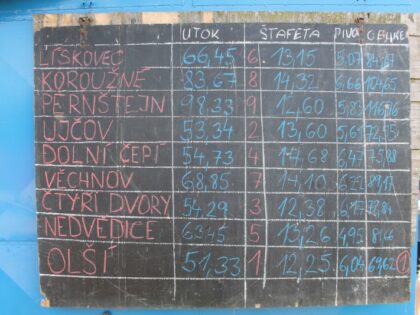 ÚTOK ŠTAFETA PIVO CELKEM
LÍSKOVEC 66,45 6. 13,15 5,07
KOROUŽNÉ 83,67 8 14,32 6,66 104,65
PERNŠTEJN 98,33 9 12,60 5,83 116,76
UJČOV 53,34 2 13,60 5,61 72,55
DOLNÍ ČEPÍ 54,73 4 14,68 6,47 75,88
VĚCHNOV 68,85 7 14,10 6,22 89,17
ČTYŘI DVORY 54,29 3 12,38 6,17 72,84
NEDVĚDICE 63,45 5 13,26 4,95 81,66
OLŠÍ 51,33 1 12,25 6,04 69,62 1